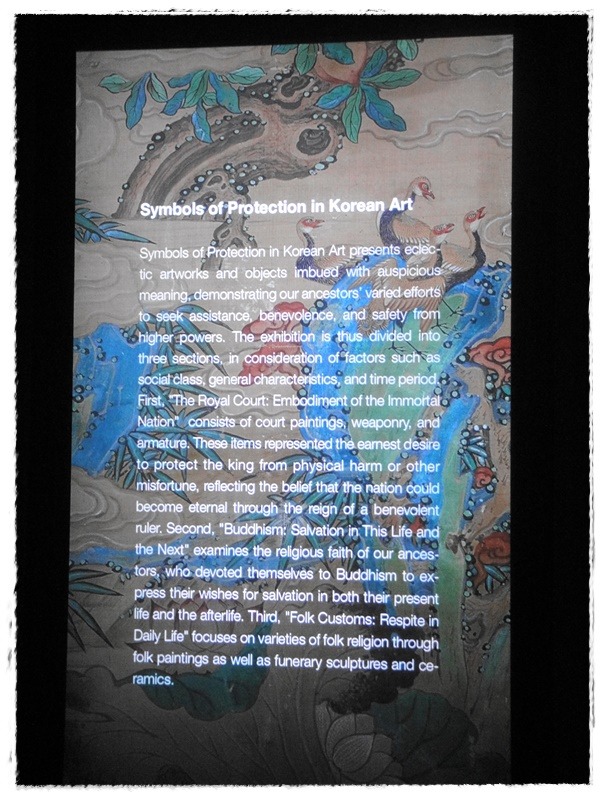 Symbols of Protection in Korean Art
Symbols of Protection in Korean Art presents eclec-
tic artworks and objects imbued with auspicious
meaning, demonstrating our ancestors' varied efforts
to seek assistance, benevolence, and safety from
higher powers. The exhibition is thus divided into
three sections, in consideration of factors such as
social class, general characteristics, and time period.
First, "The Royal Court: Embodiment of the Immortal
Nation" consists of court paintings, weaponry, and
armature. These items represented the earnest desire
to protect the king from physical harm or other
misfortune, reflecting the belief that the nation could
become eternal through the reign of a benevolent
ruler. Second, "Buddhism: Salvation in This Life and
the Next" examines the religious faith of our ances-
tors, who devoted themselves to Buddhism to ex-
press their wishes for salvation in both their present
life and the afterlife. Third, "Folk Customs: Respite in
Daily Life" focuses on varieties of folk religion through
folk paintings as well as funerary sculptures and ce-
ramics.